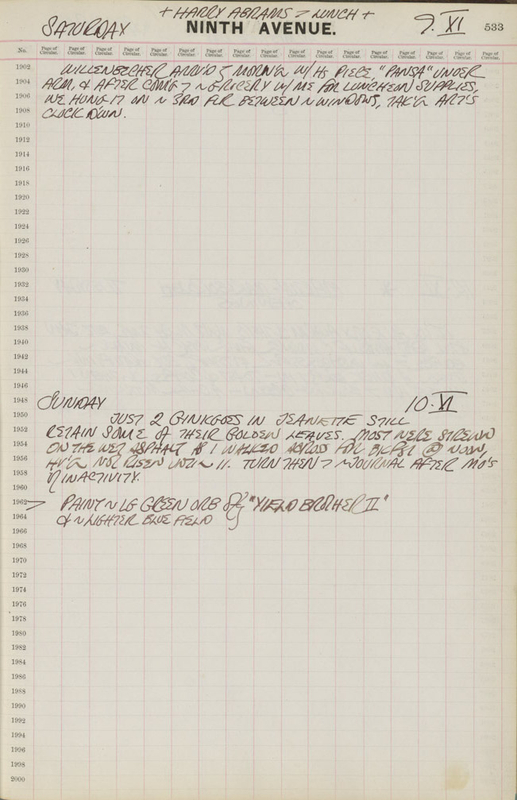 + HARRY ABRAMS > LUNCH +
SATURDAY 9. XI
NINTH AVENUE. 533
No. Page of Circular. Page of Circular. Page of Circular. Page of Circular. Page of Circular. Page of Circular. Page of Circular. Page of Circular. Page of Circular. Page of Circular. Page of Circular. Page of Circular. Page of Circular. Page of Circular. Page of Circular.
1902 WILLENBECHER MORN'G W/HS PIECE "PANSA" UNDER
1904 ARM, & AFTER COM'G GROCERY W/ ME FOR LUNCHEON SUPPLIES,
1906 WE HUNG IT ON 3RD FLR BETWEEN WINDOWS, TAK'G ART'S
1908 CLOCK DOWN.
1910
1912
1914
1916
1918
1920
1922
1924
1926
1928
1930
1932
1934
1936
1938
1940
1942
1944
1946
1948 SUNDAY 10. XI
1950 JUST 2 GINKGOES IN JEANETTE STILL
1952 RETAIN SOME OF THEIR GOLDEN LEAVES. MOST WERE STREWN
1954 ON THE WET ASPHALT AS I WALKED FOR BKFST @ NOON,
1956 HV'G NOT RISEN UNTIL 11. TURN THEN > JOURNAL AFTER MO'S
1958 OF INACTIVITY.
1960
1962 > PAINT LG GREEN ORB OF "YIELD BROTHER II"
1964 & LIGHTER BLUE FIELD
1966
1968
1970
1972
1974
1976
1978
1980
1982
1984
1986
1988
1990
1992
1994
1996
1998
2000